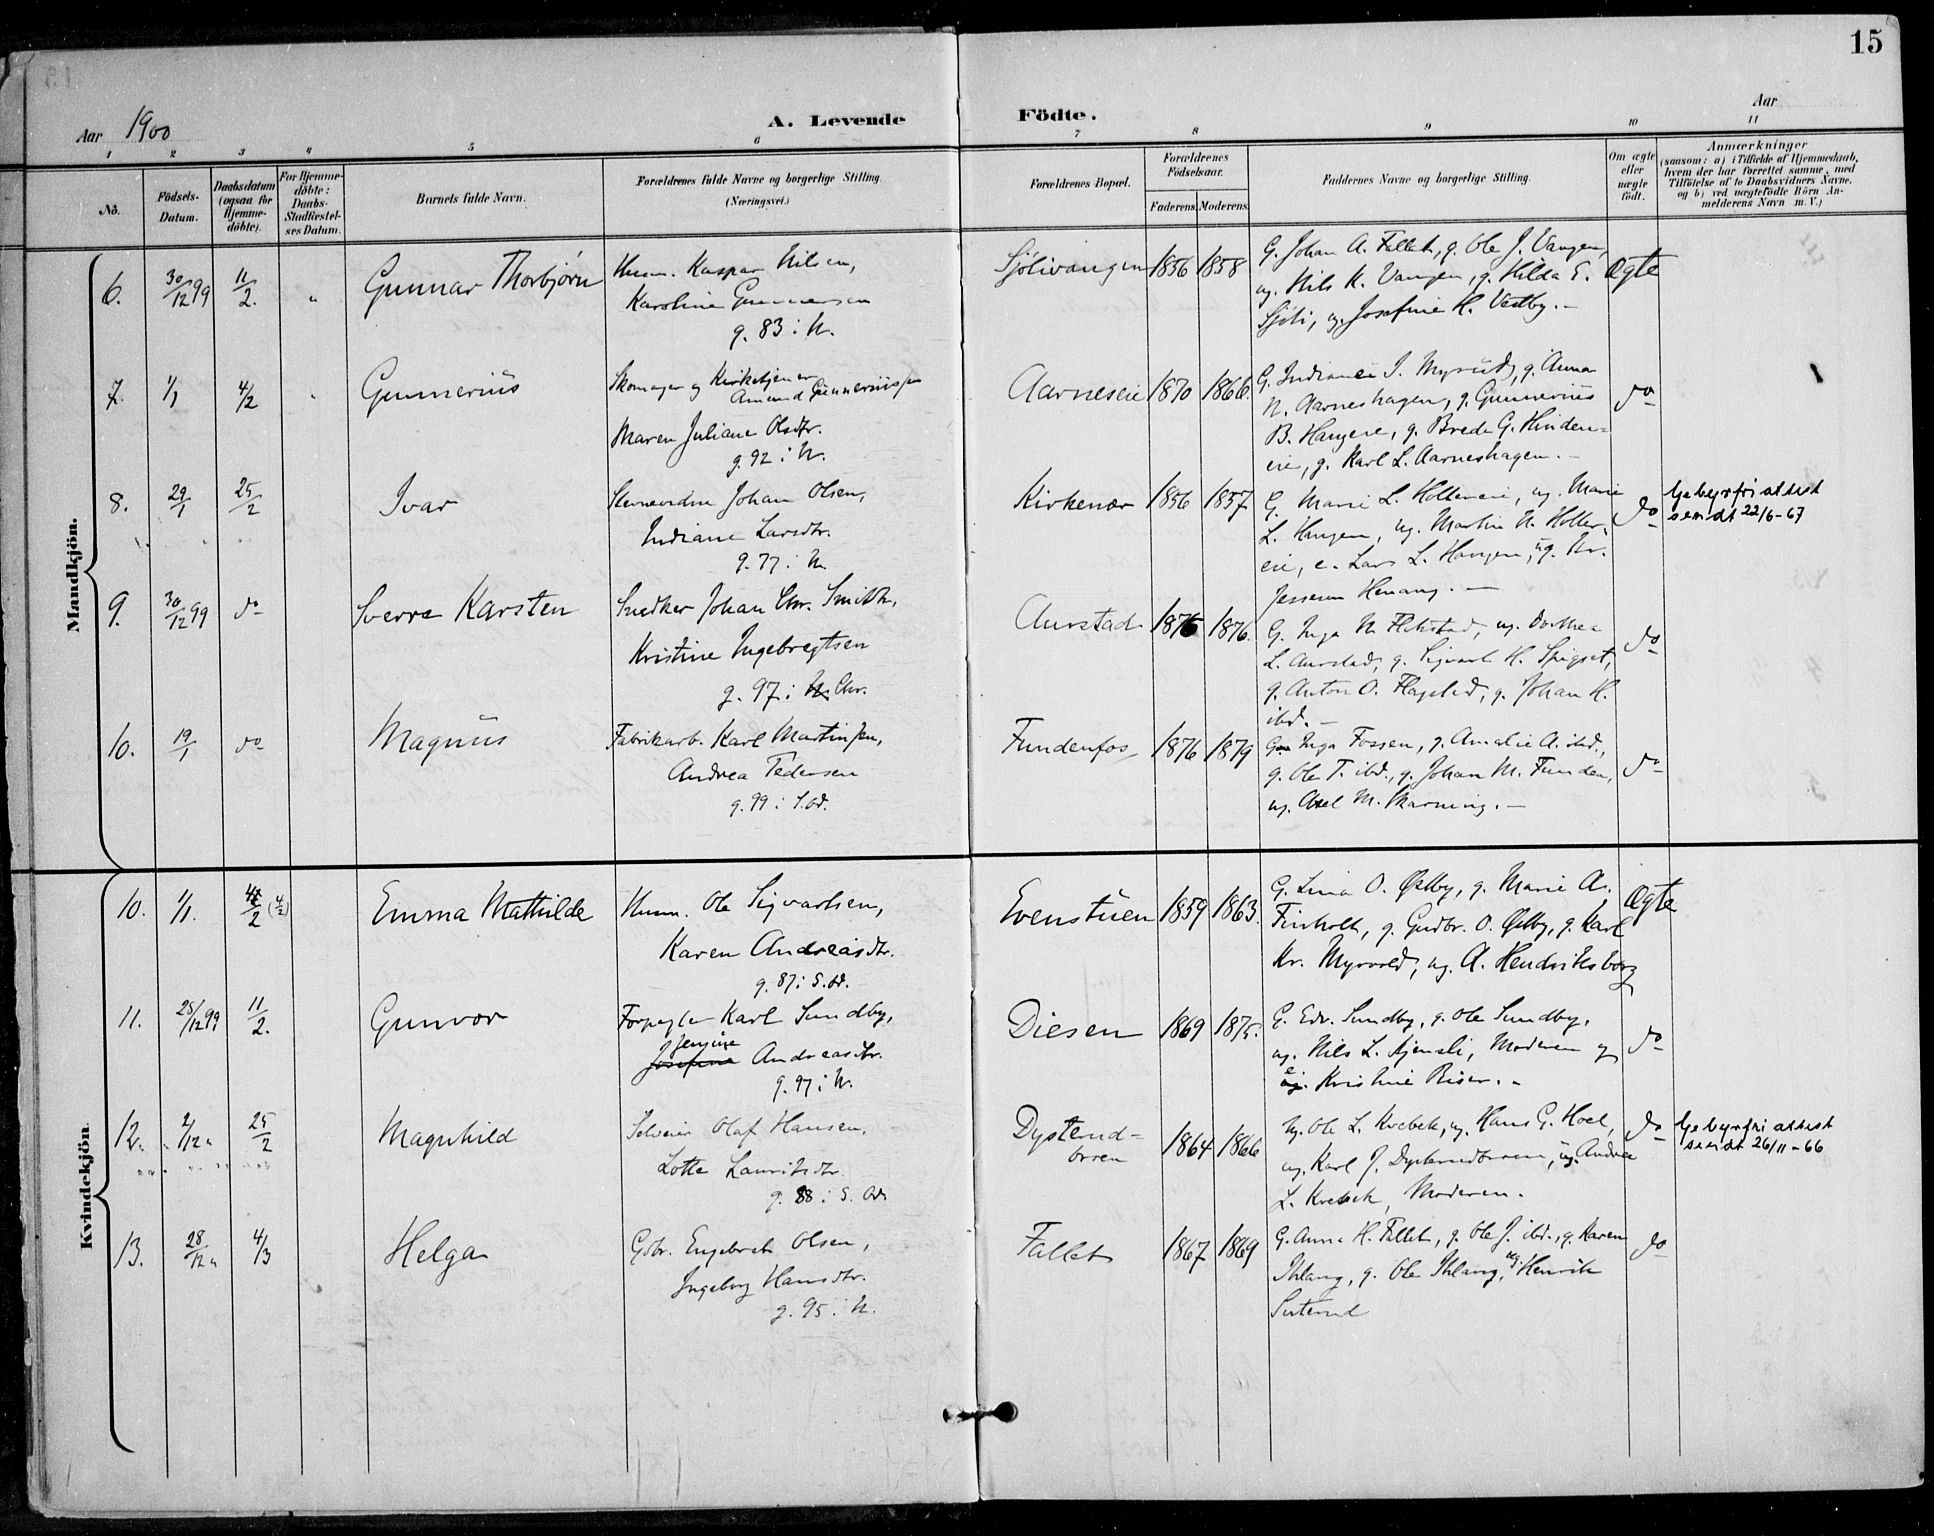 15
Aar 1900
A. Levende
Födte.
Aar
1 2 3 4 5 6 7 8 9 10 11
No.
Födsels-Datum.
Daabsdatum (ogsaa för Hjemme-döbte).
For Hjemme-döbte: Daabs-Stadfæstel-ses Datum.
Barnets fulde Navn.
Forældrenes fulde Navne og borgerlige Stilling.
(Næringsvei.)
Forældrenes Bopæl.
Forældrenes Födselsaar.
Faderens.
Moderens.
Faddernes Navne og borgerlige Stilling.
Om ægte eller uægte födt.
Anmærkninger
(saasom: a) i Tilfælde af Hjemmedaab,
hvem der har forrettet samme, med
Tilföielse af to Daabsvidners Navne.
og b) ved uægtefödte Börn An-
melderens Navn m. V.)
Mandkjön.
6. 30/12 99 11/2. " Gunnar Thorbjørn Husm. Kaspar Nilsen, Sjölivangen 1856 1858 G. Johan A. Fallet, g. Ole J. Vangen, Ægte
Karoline Gunnersen ug. Nils K. Vangen, g. Hilda E.
g. 83 i N. Sjöli, ug. Josefine H. Vestby. –
7. 1/1 4/2 " Gunnerius Skomager og Kirketjener Aarneseie 1870 1866. G. Indianei I. Myrud, g. Anna do
Amund Gunneriussen N. Aarneshagen, g. Gunnerius
Maren Juliane Olsdtr. B. Haugeie, g. Brede G. Hinden=
g. 92 i N. eie, g. Karl L. Aarneshagen. –
8. 29/1 25/2 Ivar Johan Olsen, Kirkenær 1856 1857 G. Marie L. Holtereie, ug. Marie do Gebyrfri attest
Indiane Larsdtr. L. Haugen, ug. Martin N. Holter- sendt 22/6-67
g. 77 i N. eie, e. Lars L. Haugen, ug. Kr.
Jessenn Henang. –
9. 30/12 99 do Sverre Karsten Snedker Johan Chr. Smith, Aurstad 1875 1876. G. Inga N. Flakstad, ug. Dorthea do
Kristine Ingebregtsen L. Aurstad, g. Sigvart H. Spigset,
g. 97 i N. Chr. g. Anton O. Flagstad, g. Johan H.
ibd. –
10. 19/1 do Magnus Fabrikarb. Karl Martinsen, Fundenfos 1876 1879 G. Inga Fossen, g. Amalie A. ibd., do
Andrea Pedersen g. Ole T. ibd., g. Johan M. Funden,
g. 99 i S.Od. ug. Axel M. Skarning. –
Kvindekjön.
10. 1/1. 4/2 (4/2) Emma Mathilde Husm. Ole Sigvartsen, Evenstuen 1859 1863. G. Lina O. Østby, g. Marie A. Ægte
Karen Andreasdtr. Finholt, g. Gudbr. O. Østby, g. Karl
g. 87 i S.Od. Kr. Myrvold, ug. A. Hendriksborg
11. 28/12 99 11/2. Gunvor Forpagter Karl Sundby, Diesen 1869 1875. G. Edv. Sundby, g. Ole Sundby, do
Josefine Jensine Andreasdtr. ug. Nils L. Gjensli, Moderen og
g. 97 i N. ug. e. Kristine Riser. –
12. 2/12 " 25/2 Magnhild Selveier Olaf Hansen, Dysterud= 1864 1866 Ug. Ole L. Kvebek, ug. Hans G. Hoel, do Gebyrfri attest
Lotte Lauritsdtr. braaten ug. Karl J. Dysterudbraaten, ug. Andrea sendt 26/11-66
g. 88 i S. Od. L. Kvebek, Moderen.
13. 28/12 " 4/3 Helga Gbr. Engebret Olsen, Fallet 1867 1869 G. Anna H. Fallet, g. Ole J. ibd., g. Karen do
Ingeborg Hansdtr. Ihlang, g. Ole Ihlang, ug. Henrik
g. 95 i N. Suterud